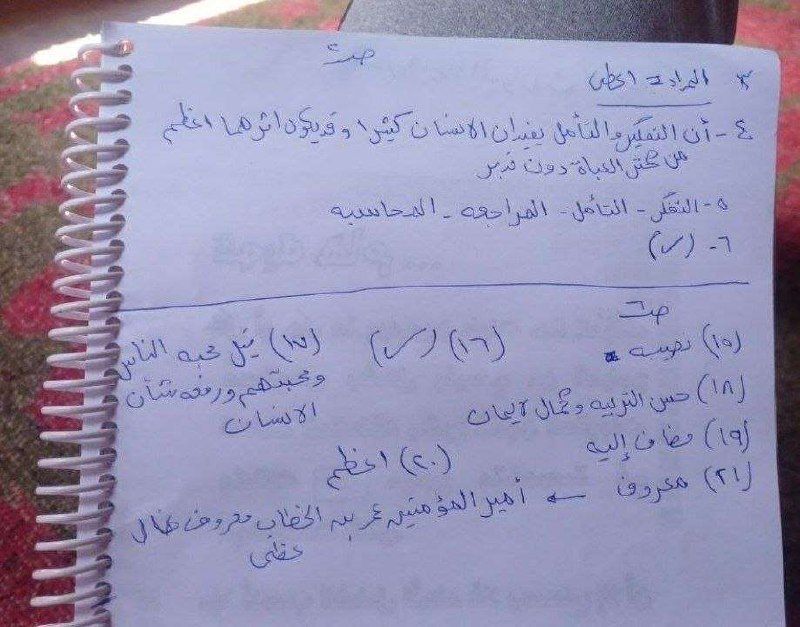 ٣ المراد = اعطى
٤- أن التفكير والتأمل يفيدان الانسان كثيرا وقد يكون اثرهما اعظم
من كثير العبادة دون تدبر
٥- التفكر - التأمل - المراجعه - المحاسبه
٦- (س)
(١٥) نصيبه (١٦) (س) (١٧) نيل محبه الناس
ومحبتهم ورفعه شأن
الانسان
(١٨) حسن التربيه وكمال الايمان
(١٩) مضاف إليه (٢٠) اعظم
(٢١) معروف ← أمير المؤمنين عمر بن الخطاب معروف